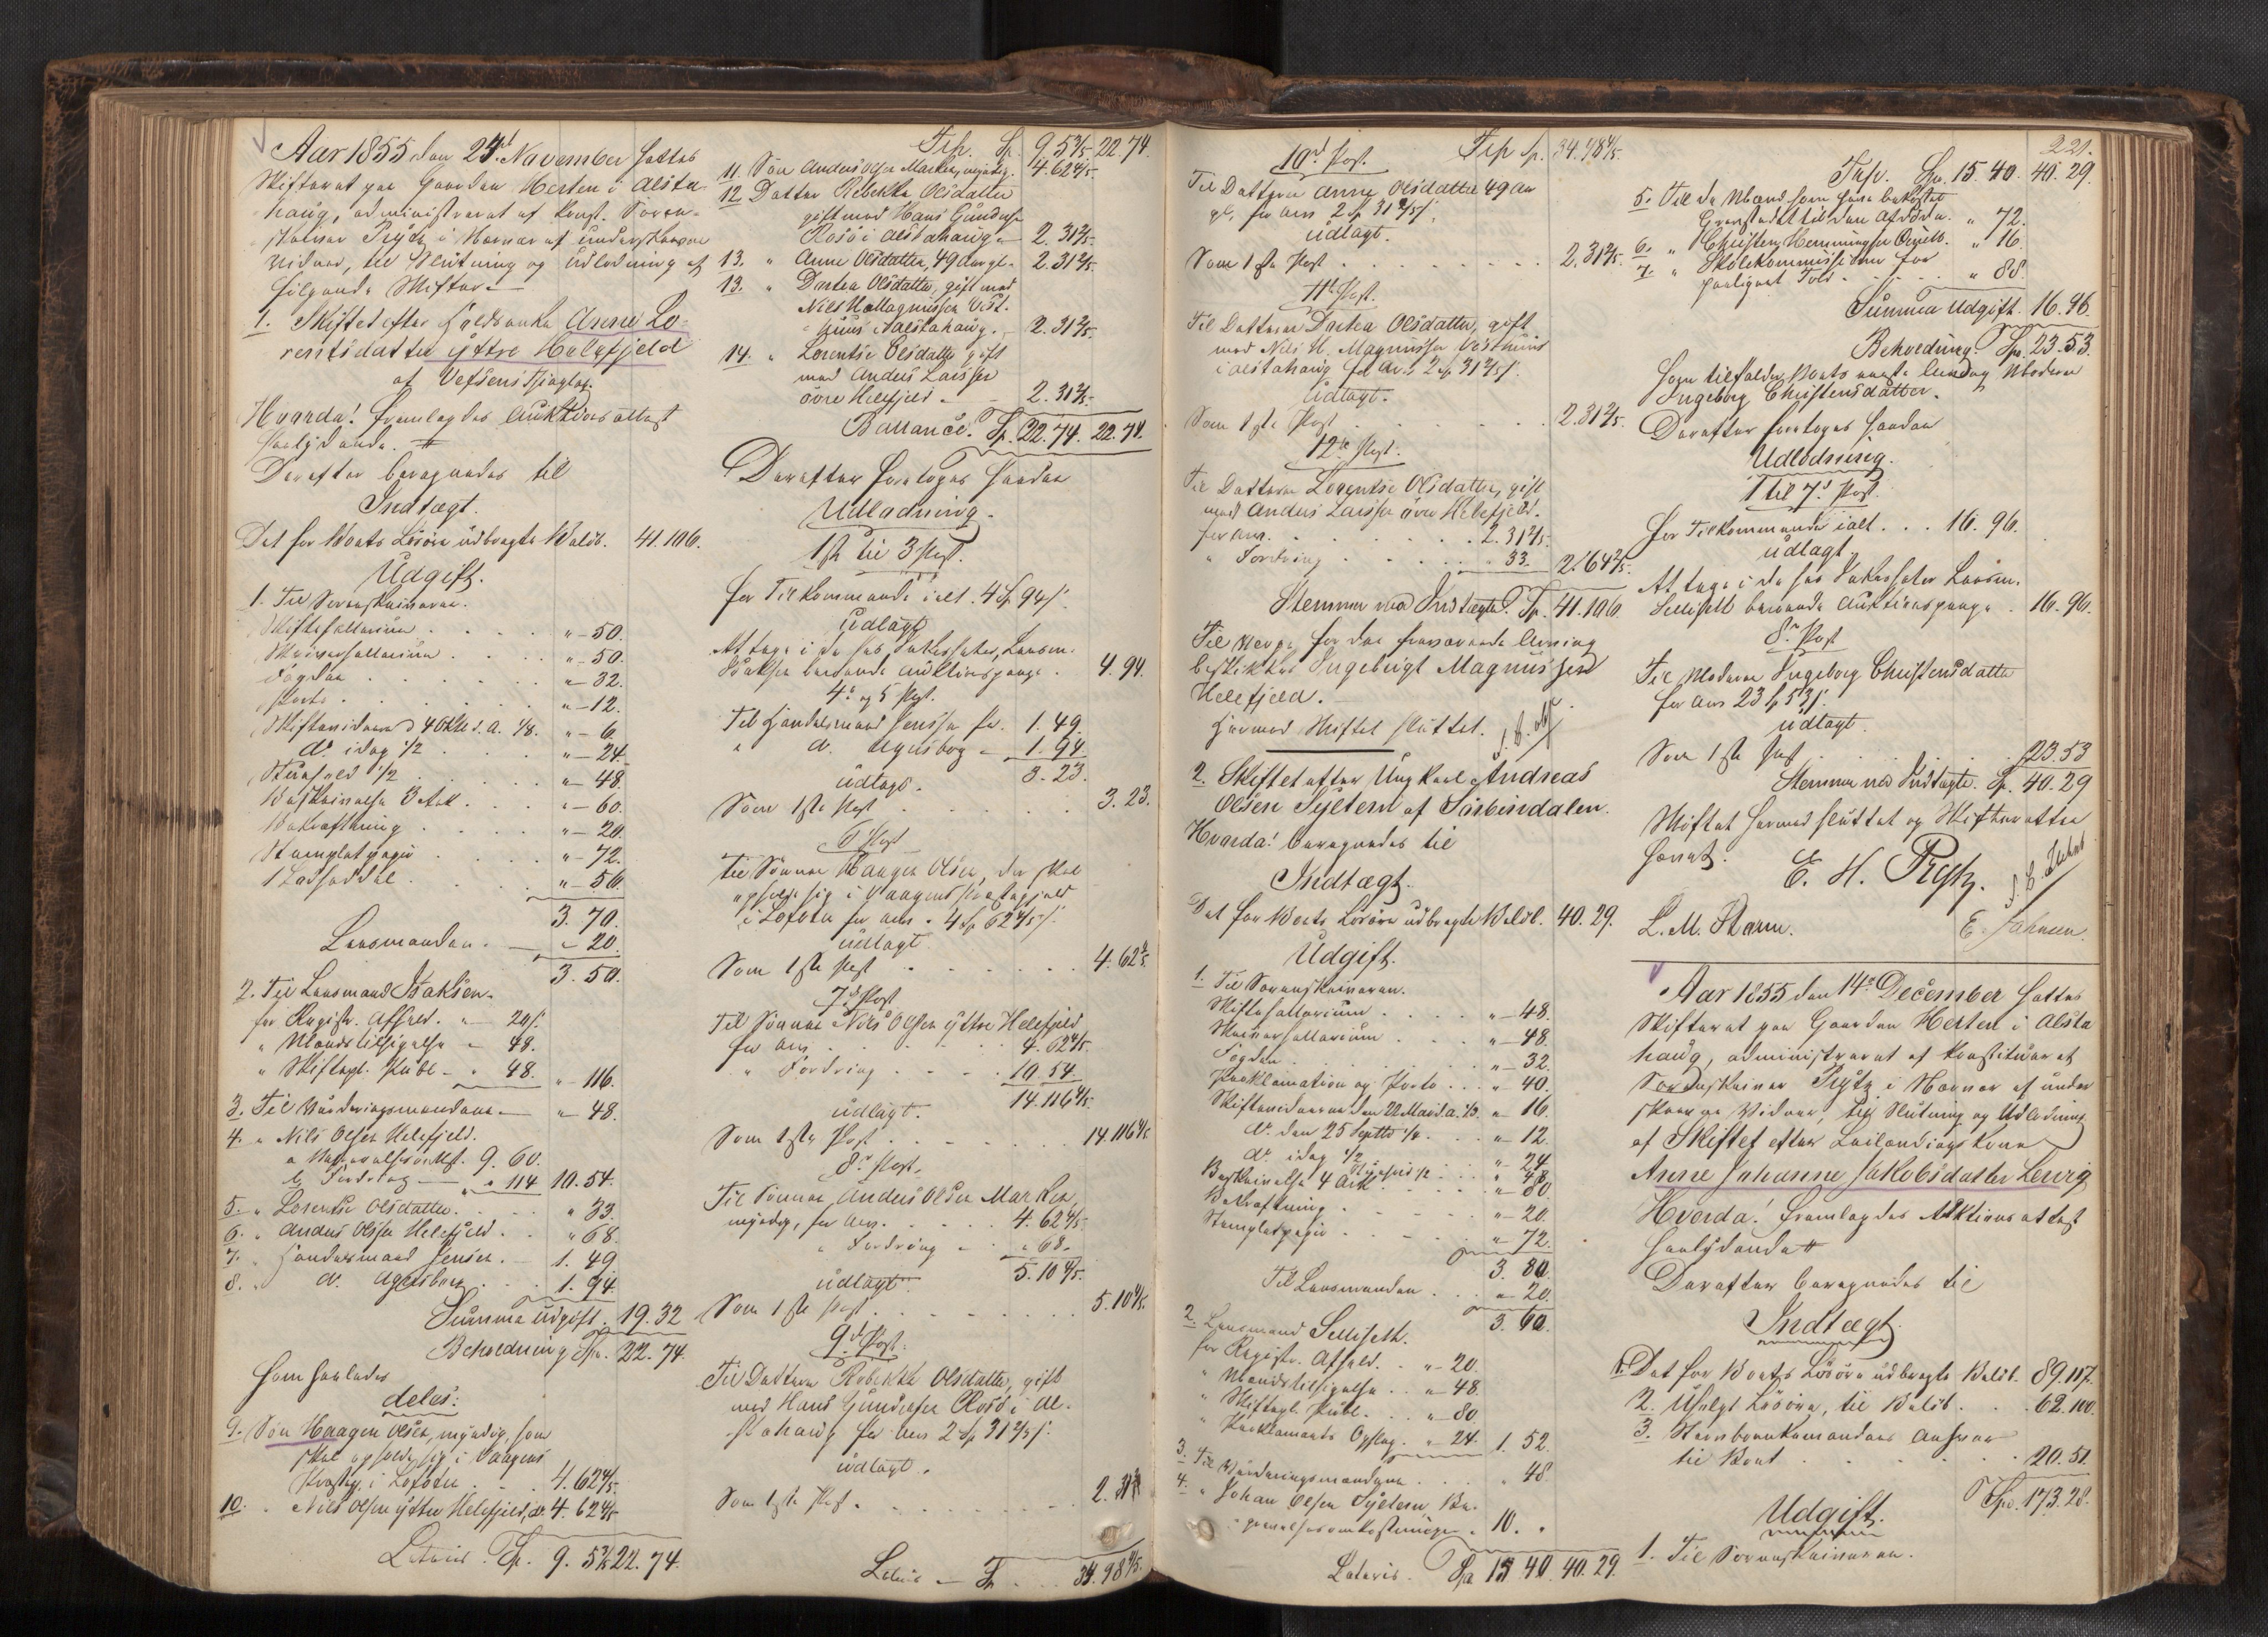 Aar 1855 den 24d November sattes
Skifteret paa Gaarden Herten i Alsta-
haug, administreret af konst. Soren-
skriver Prytz i Nærvær af underskrevne
Vidner, til Slutning og Udlodning af
følgende Skifter
1. Skiftet efter Huusmands Anne Lo-
rentsdatter yttre Helefjeld
af Vefsens Tjinglag.
Hvorda! fremlagdes Auktionsattest
saalydende #
Derefter beregnedes til
Indtægt.
Det for Boets Løsøre udbragte Beløb. 41.106.
Udgift.
1. Til Sorenskriveren.
Skiftesallarium " - 50.
Skriversallarium " - 50.
Fogden " - 32.
Porto " - 12.
Skiftevidnerne d 4 Oktbr d. A. 1/8. " - 6.
do idag 1/2 " - 24.
" - 48.
Beskrivelse 3 Ark " - 60.
Bekræftning " - 20.
Stemplet papir " - 72.
" - 56.
3. 70.
Lensmanden. " 20.
3. 50.
2. Til Lensmand Isaksen.
for Registr. Afhold. " 20 s.
" Mandstilsigelse " 48.
" Skiftegl. Publ. " 48. " - 116.
3. Til Vurderingsmændene " - 48.
4. " Nils Olsen Helefjeld.
a Begravelsesomkost. 9. 60.
b Fordring " 114 10.54.
5. " Lorentse Olsdatter. " 33.
6. " Anders Olsen Helefjeld. " 68.
7. " Handelsmand Jensen. 1. 49
8. " do. Agersborg 1. 94.
Summa Udgift. 19.32
Beholdning Sp. 22.74.
som saaledes
deles:
9. Søn Haagen Olsen, myndig, som
skal opholde sig i Vaagens
Præstegj. i Lofoten 4. 62 4/5
10. " Nils Olsen yttre Helefjeld, do 4. 62 4/5
Lateris Sp. 9. 5 3/5 22.74.
Trsp. Sp. 9 5 3/5 22 74.
11. Søn Anders Olsen Marken, myndig. 4. 62 4/5.
12. Datter Rebekka Olsdatter
gift med Hans Gundersen
Rosø i Alstahaug 2. 31 2/5
13. " Anne Olsdatter, 49 Aar gl. 2. 31 2/5
13. " Dortea Olsdatter, gift med
Nils H. Magnussen Vest-
huus i Alstahaug. 2. 31 2/5.
14. " Lorentse Olsdatter gift
med Anders Larssen
øvre Helefjeld 2. 31 2/5
Ballance. Sp. 22.74. 22.74.
Derefter foretoges saadan
Udlodning.
1ste til 3 Post.
for Tilkommende ialt. 4 Sp 94 s.
udlagt
At tage i de hos Inkassator, Lensm.
Isaksen beroende Auktionspenge. 4. 94.
4de og 5 Post.
Til Handelsmand Jensen for 1. 49.
" do. Agersborg " 1. 94.
3. 23.
udlagt.
Som 1ste Post 3. 23.
6 Post
Til Sønnen Haagen Olsen, der skal
opholde sig i Vaagens Præstegjeld
i Lofoten for Arv. 4 Sp 62 4/5 s
udlagt
Som 1ste Post 4. 62 4/5.
7de Post
Til Sønnen Nils Olsen yttre Helefjeld
for Arv 4. 62 4/5
" Fordring 10 54.
14. 116 4/5
udlagt.
Som 1ste Post 14. 116 4/5
8de Post.
Til Sønnen Anders Olsen Marken,
myndig, for Arv. 4. 62 4/5
" Fordring " 68.
5. 10 4/5.
udlagt
Som 1ste Post 5. 10 4/5.
9de Post.
Til Datteren Rebekka Olsdatter, gift
med Hans Gundersen Rosø i Al-
stahaug for Arv 2 Sp 31 2/5 s
udlagt.
Som 1ste Post. 2. 31 2/5
Lateris Sp 34. 98 4/5.
Trsp Sp. 34. 98 4/5.
10de Post.
Til Datteren Anne Olsdatter 49 Aar
gl. for Arv 2 Sp 31 2/5 s.
udlagt.
Som 1ste Post 2. 31 2/5.
11te Post.
Til Datteren Dortea Olsdatter, gift
med Nils H. Magnussen Vesthuus
i Alstahaug for Arv 2 Sp 31 2/5 s.
udlagt.
Som 1ste Post 2. 31 2/5.
12te Post.
Til Datteren Lorentse Olsdatter, gift
med Anders Larssen øvre Helefjeld.
for Arv. 2. 31 2/5.
" Fordring " 33. 2. 64 2/5.
Stemmer med Indtægten. Sp. 41.106.
Til Værge for den fraværende Arving
beskikkes Ingebrigt Magnussen
Helefjeld.
Hermed Skiftet sluttet.
2. Skiftet efter Ungkarl Andreas
Olsen Sylteren af Sørbindalen.
Hvorda! beregnedes til
Indtægt.
Det for Boets Løsøre udbragte Beløb. 40. 29.
Udgift.
1. Til Sorenskriveren.
Skiftesallarium " - 48.
Skriversallarium " - 48.
Fogden " - 32.
Proklamation og Porto " 40.
Skiftevidnerne den 22 Mai d. A. 1/3. " 16.
do. den 25 Septbr 1/4 " - 12.
do. idag 1/2 " - 24
" 48.
Beskrivelse 4 Ark " - 80.
Bekræftning " - 20.
Stempletpapir " - 72.
3. 80.
Til Lensmanden " 20.
3. 60.
2. Lensmand Sellisett.
for Registr. Afhold. " - 20.
" Mandstilsigelse " - 48.
" Skiftegl. Publ. " - 80.
" Proklamaets Opslag. " - 24. 1. 52.
3. Til Vurderingsmændene " 48.
4. " Johan Olsen Sylteren, Be-
gravelsesomkostninger. 10. "
Lateris. Sp 15 40 40. 29.
221.
Trsp. Sp. 15. 40. 40. 29.
5. Til de Mænd som have bekostet
Gravstedet til den Afdøde. " 72.
6. " Christen Hemmingsen " 16.
7. " Skolekommissionen for
paalignet Told " 88.
Summa Udgift. 16. 96.
Beholdning. Sp. 23. 53.
som tilfalder Boets eneste Arving Moderen
Ingeborg Christensdatter.
Derefter foretoges saadan
Udlodning.
1 til 7de Post.
for Tilkommende ialt. 16. 96.
udlagt
At tage i de hos Inkassator Lensm.
Sellisett beroende Auktionspenge. 16. 96.
8de Post
Til Moderen Ingeborg Christensdatter
for Arv 23 Sp 53 s.
udlagt.
Som 1ste Post 23. 53
Stemmer med Indtægten. Sp. 40. 29
Skiftet hermed sluttet og Skifteretten
hævet.
E. H. Prytz.
L. M. Storm.
E. Johnsen
Aar 1855 den 14de December sattes
Skifteret paa Gaarden Herten i Alsta
haug, administreret af konstitueret
Sorenskriver Prytz i Nærvær af under
skrevne Vidner, til Slutning og Udlodning
af Skiftet efter Leilændingskone
Anne Johanne Jakobsdatter Leivig
Hvorda! fremlagdes Auktionsattest
saalydende #
Derefter beregnedes til
Indtægt.
1. Det for Boets Løsøre udbragte Beløb. 89. 117.
2. Usolgt Løsøre, til Beløb. 62. 100.
3. Stervboenkemandens Ansvar
til Boet 20. 51.
Sp. 173. 28.
Udgift.
1. Til Sorenskriveren.